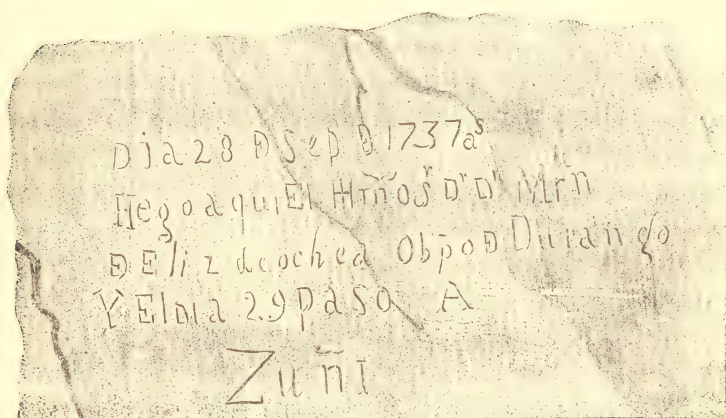 Dia 28 Ð Sep Ð 1737 aˢ
llego aqui El Illm̃o Sʳ Dʳ Dⁿ Mrñ
Ð Elizdcochea Obp̃o Ð Durango
Y El Dia 29 paso A
Zuñi